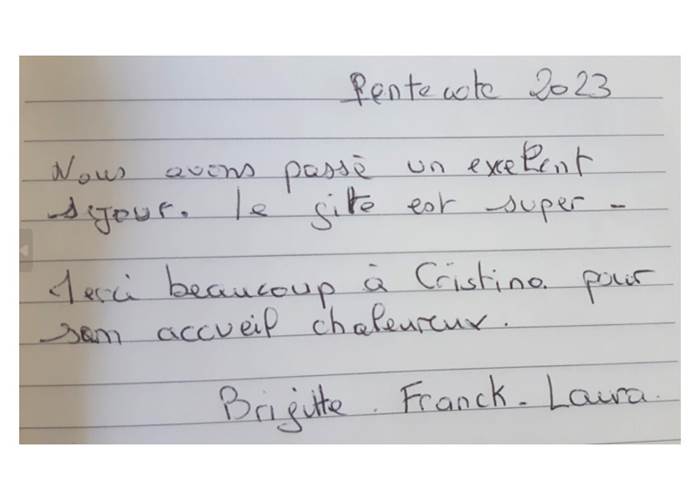 Pentecote 2023
Nous avons passé un excellent
séjour. le gite est super -
Merci beaucoup à Cristina pour
son accueil chaleureux.
Brigitte. Franck - Laura.